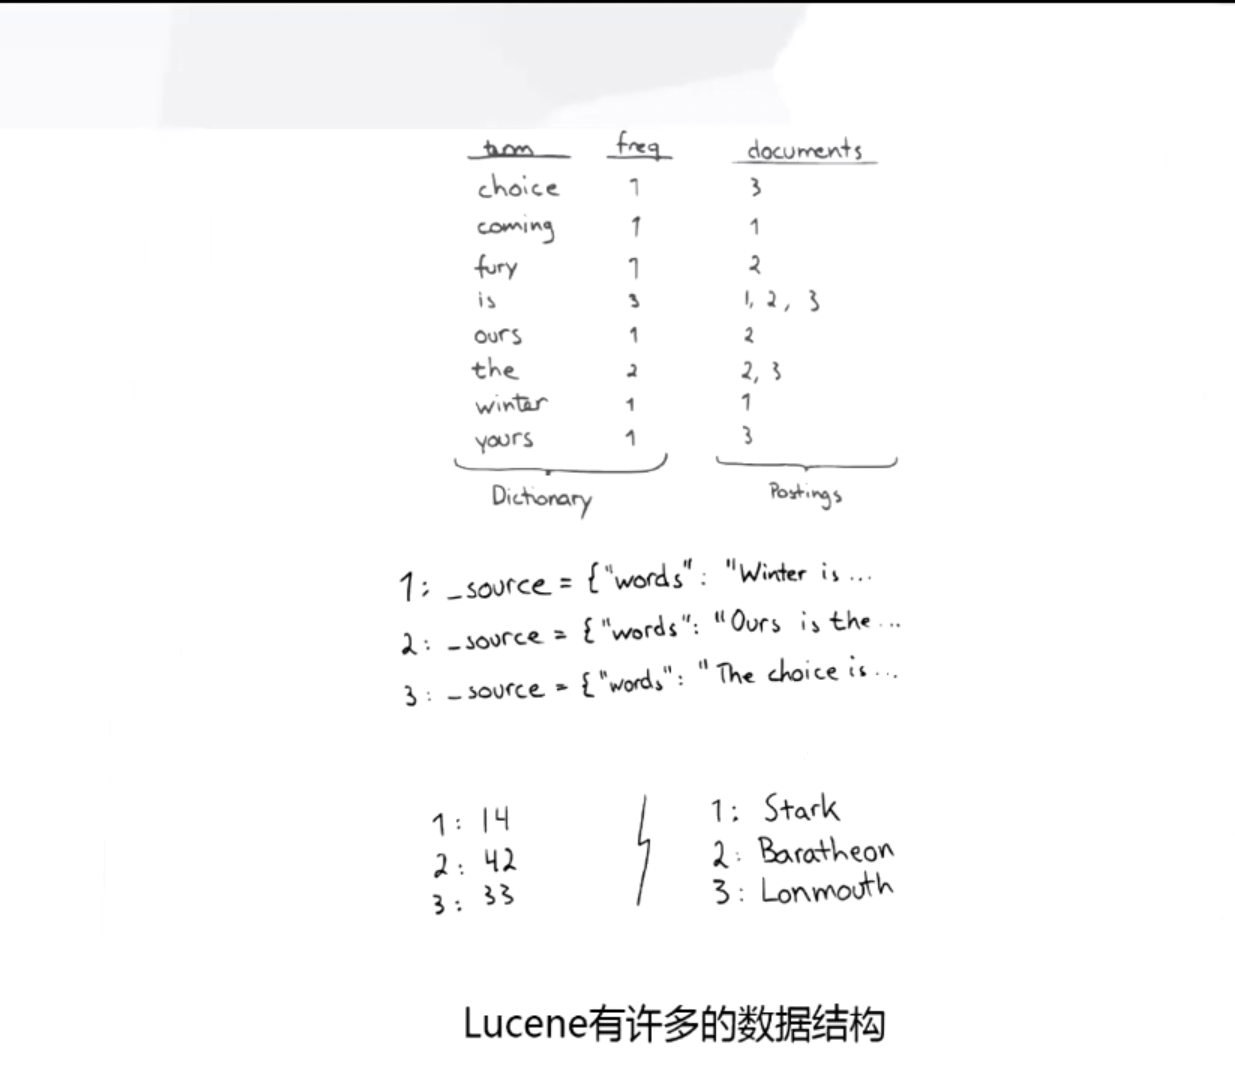 term freq documents
choice 1 3
coming 1 1
fury 1 2
is 3 1, 2, 3
ours 1 2
the 2 2, 3
winter 1 1
yours 1 3
Dictionary Postings
1: _source = {"words": "Winter is ...
2: _source = {"words": "Ours is the ...
3: _source = {"words": "The choice is ...
1: 14 1: Stark
2: 42 2: Baratheon
3: 33 3: Lonmouth
Lucene有许多的数据结构